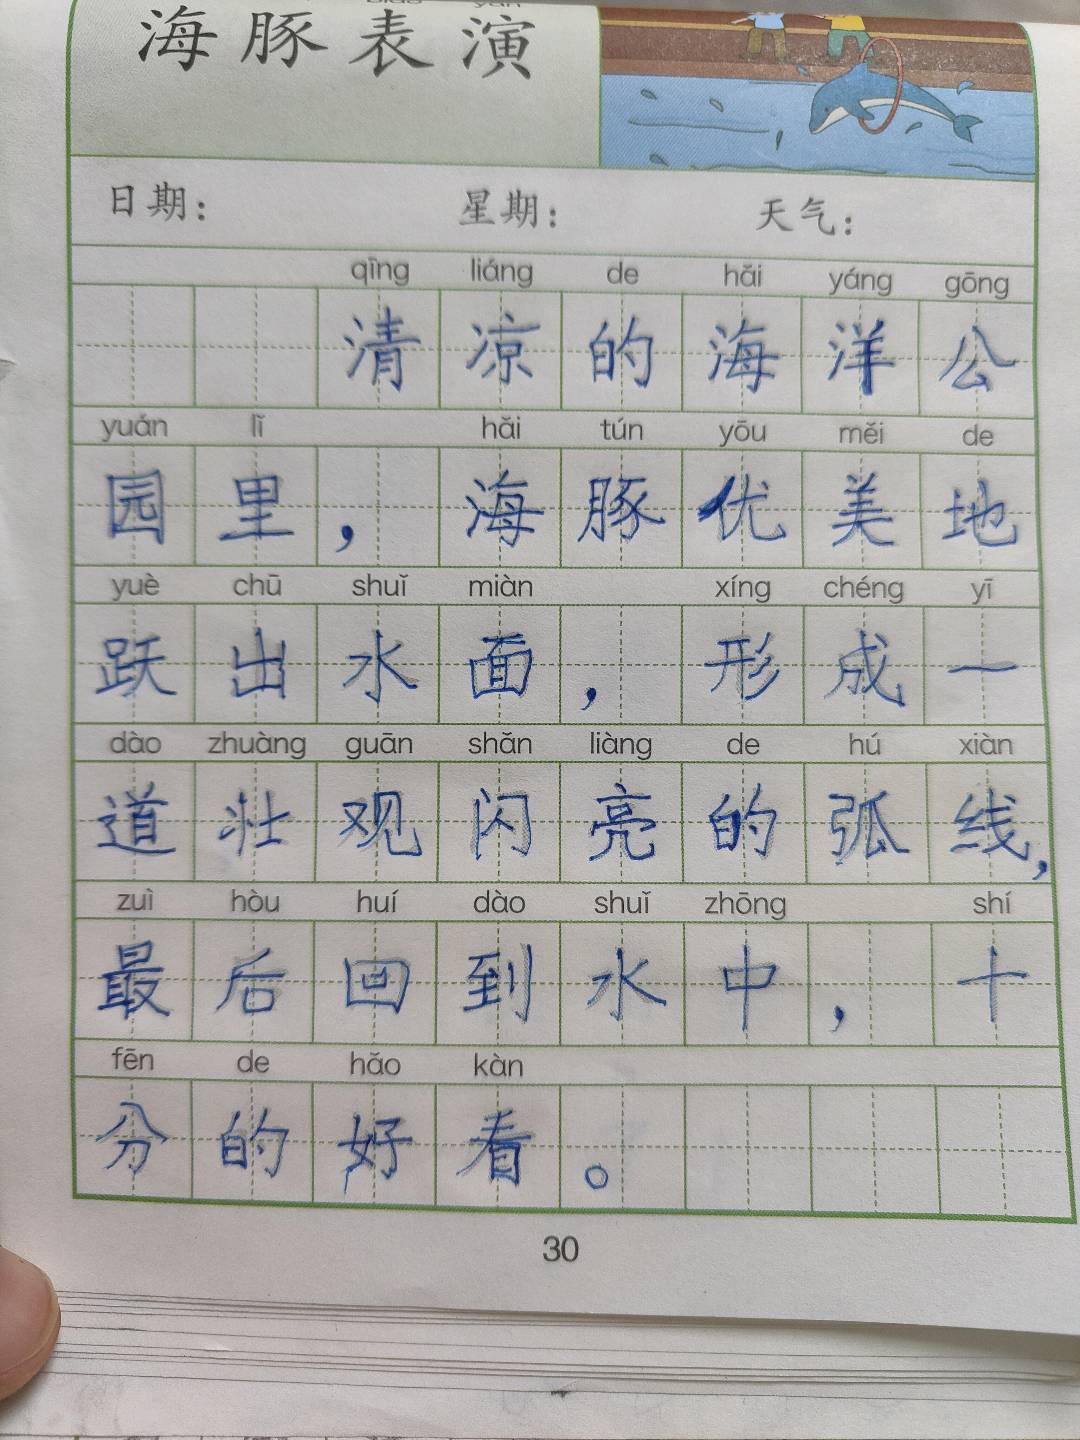 海豚表演
日期： 星期： 天气：
qīng liáng de hǎi yáng gōng
清凉的海洋公
yuán lǐ hǎi tún yōu měi de
园里，海豚优美地
yuè chū shuǐ miàn xíng chéng yī
跃出水面，形成一
dào zhuàng guān shǎn liàng de hú xiàn
道壮观闪亮的弧线，
zuì hòu huí dào shuǐ zhōng shí
最后回到水中，十
fēn de hǎo kàn
分的好看。
30